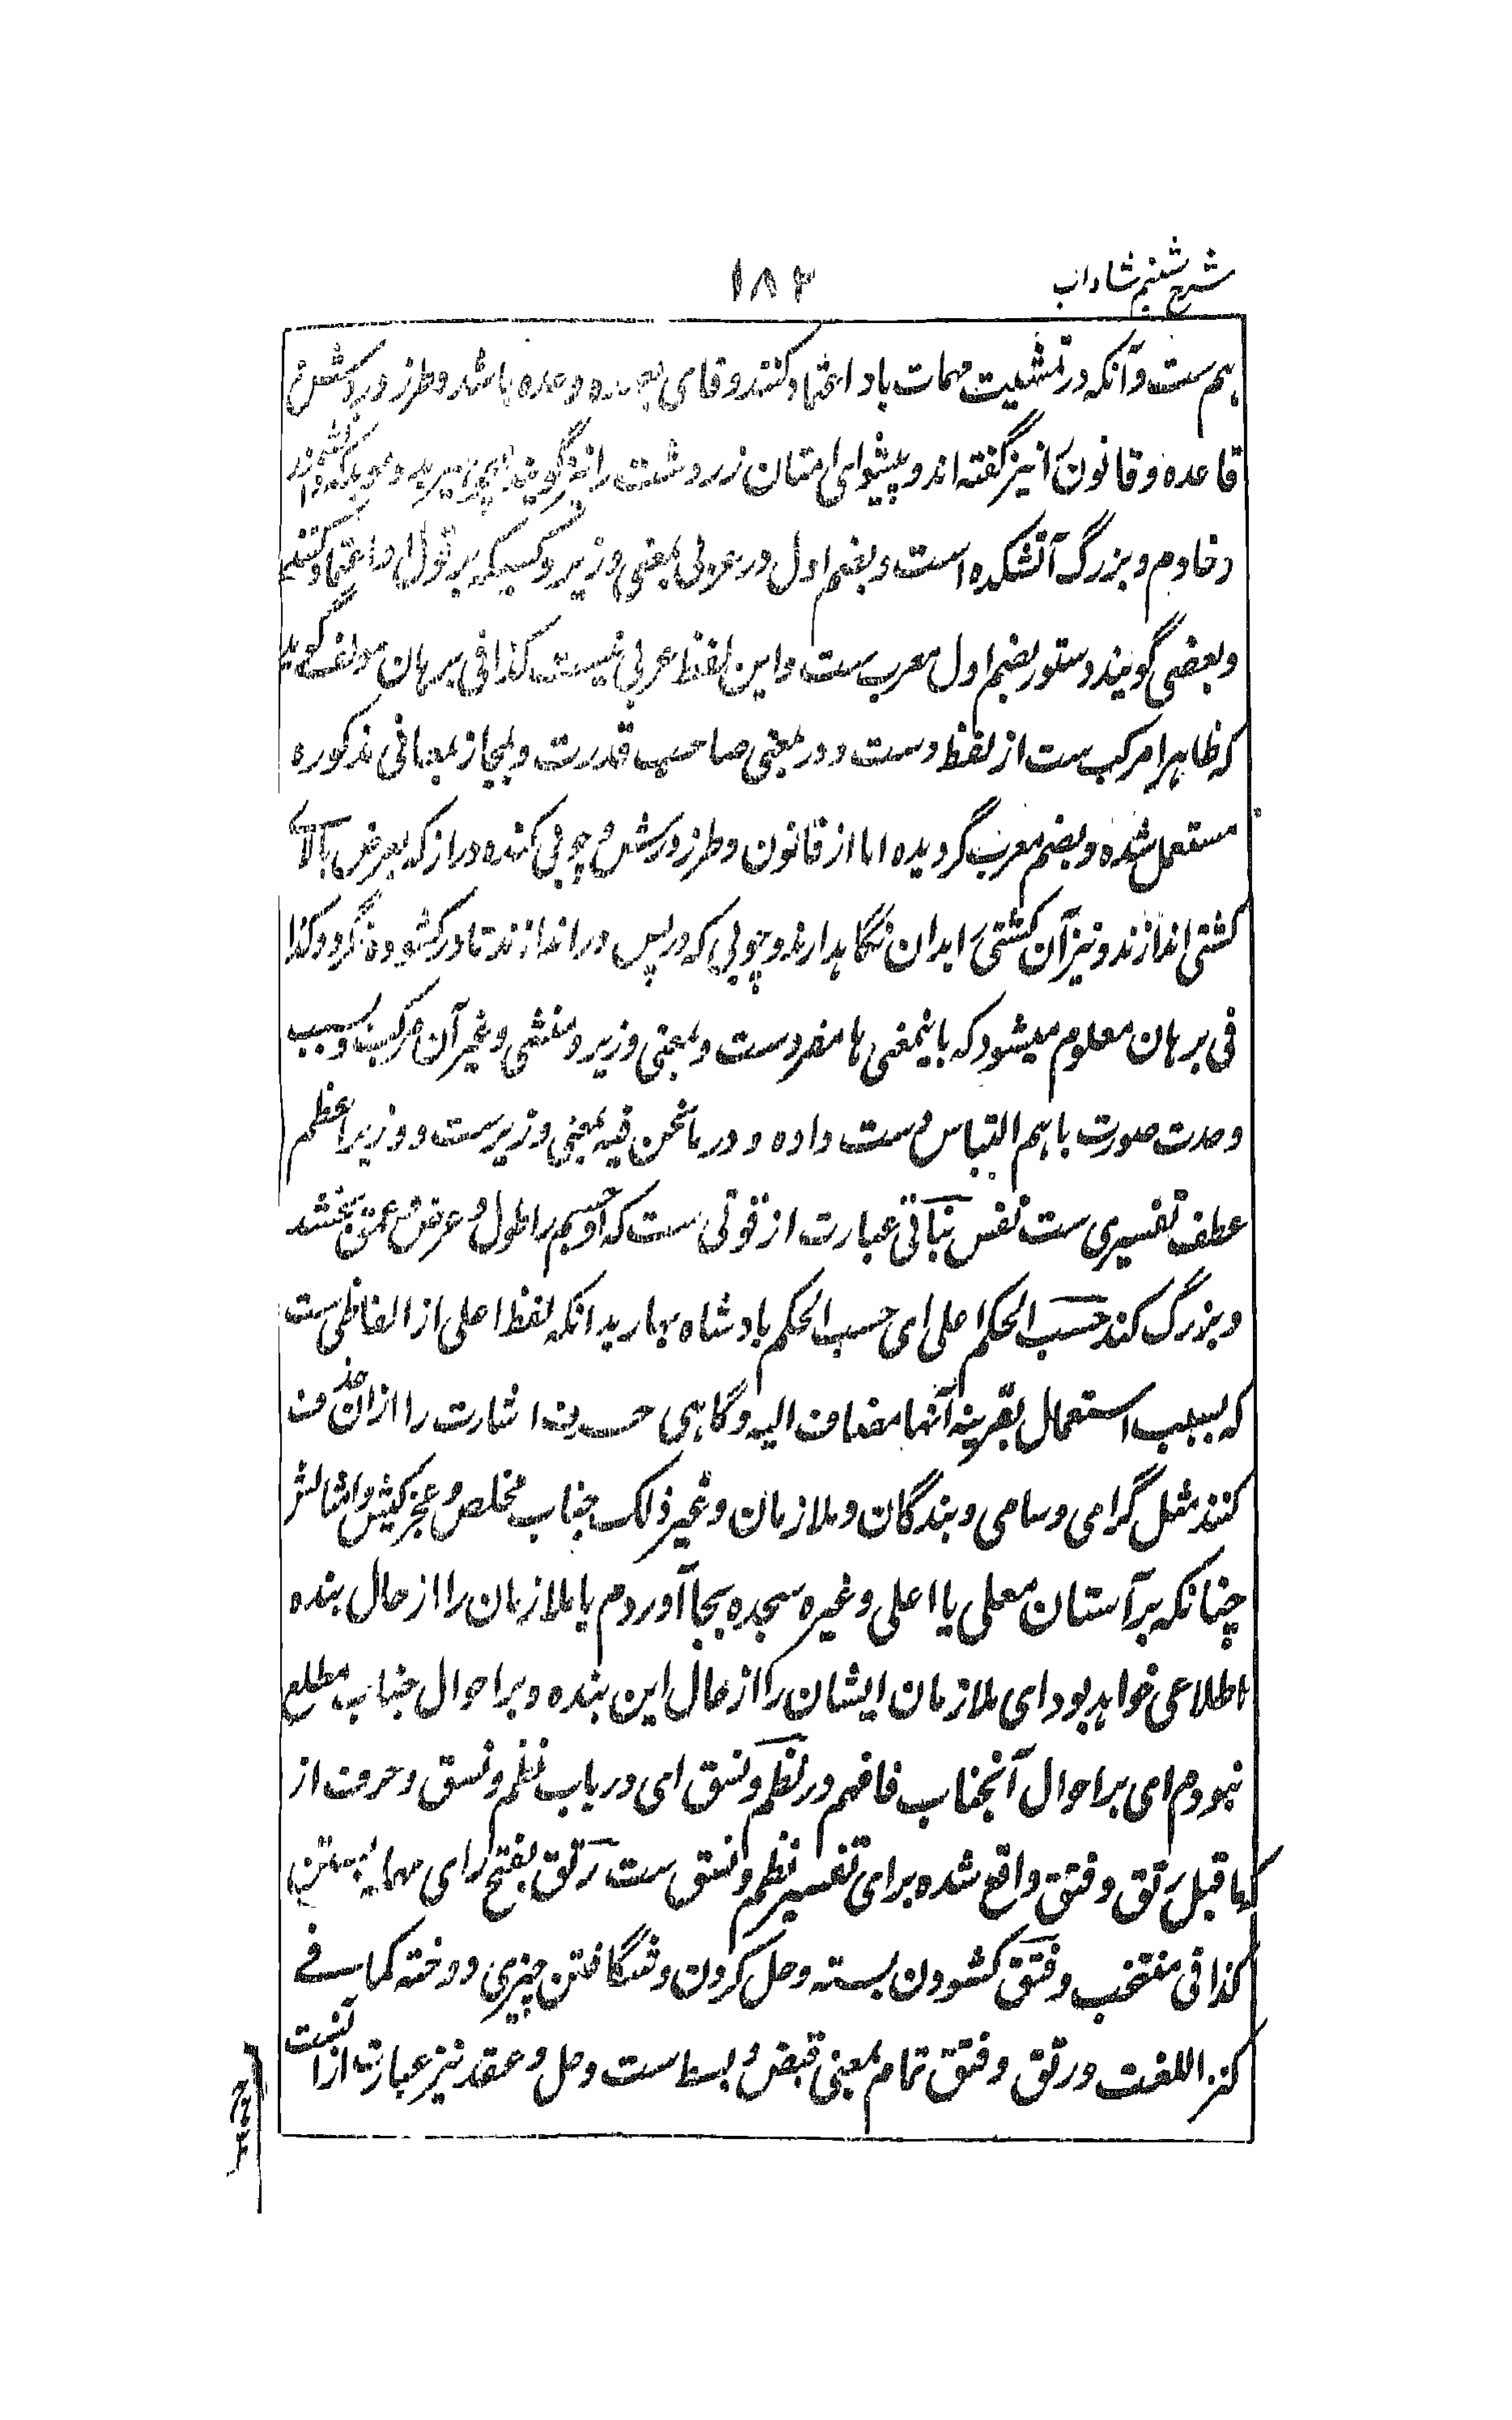 شرح شبنم شاداب
۱۸۴
هم ست و آنکه در تمشیت مهمات باو اعتماد کنند و قای وعده باشد و طرز و روش
قاعده و قانون را نیز گفته اند و پیشوای امتان زردشت را نیز گویند
و خادم و بزرگ آتشکده است و بضم اول در عربی بمعنی وزیر و کسیکه بر قول او اعتماد کنند
و بعضی گویند دستور بضم اول معرب ست و این لفظ عربی نیست کذا فی برهان مولف گوید
که ظاهرا مرکب ست از لفظ دست و ور بمعنی صاحب قدرت و بمجاز بمعانی مذکوره
مستعمل شده و بضم معرب گردیده اما از قانون و طرز و روش و چوبی کنده دراز که بعرض بالای
کشتی اندازند و نیز آن کشتی را بدان نگاه دارند و چوبی که در پس در اندازند تا در کشوده نگردد کذا
فی برهان معلوم میشود که باینمعنی ها مفرد ست و بمعنی وزیر و منشی و غیر آن مرکب و بسبب
وحدت صورت باهم التباس دست داده و در ما نحن فیه بمعنی وزیر ست و وزیر اعظم
عطف تفسیری ست نفس نباتی عبارت از قوتی ست که او جسم را طول و عرض و عمق بخشد
و بزرگ کند حسب الحکم اعلی ای حسب الحکم بادشاه بهار بدانکه لفظ اعلی از الفاظی ست
که بسبب استعمال بقرینه آنها مضاف الیه و گاهی حرف اشارت را ازان حذف
کنند مثل گرامی و سامی و بندگان و ملازمان و غیر ذلک جناب مخلص و عجز کیش و امثالش
چنانکه بر آستان معلی یا اعلی و غیره سجده بجا آوردم یا ملازمان را از حال بنده
اطلاعی خواهد بود ای ملازمان ایشان را از حال این بنده و بر احوال جناب مطلع
نبودم ای بر احوال آنجناب فافهم در نظم و نسق ای در باب نظم و نسق و حرف از
ما قبل رتق و فتق واقع شده برای تفسیر نظم و نسق ست رتق بفتح رای مهمله بستن
کذا فی منتخب و فتق کشودن بسته و حل کردن و شگافتن چیزی دوخته کما فے
کنز اللغت و رتق و فتق تمام بمعنی قبض و بسط ست و حل و عقد نیز عبارت از آنست